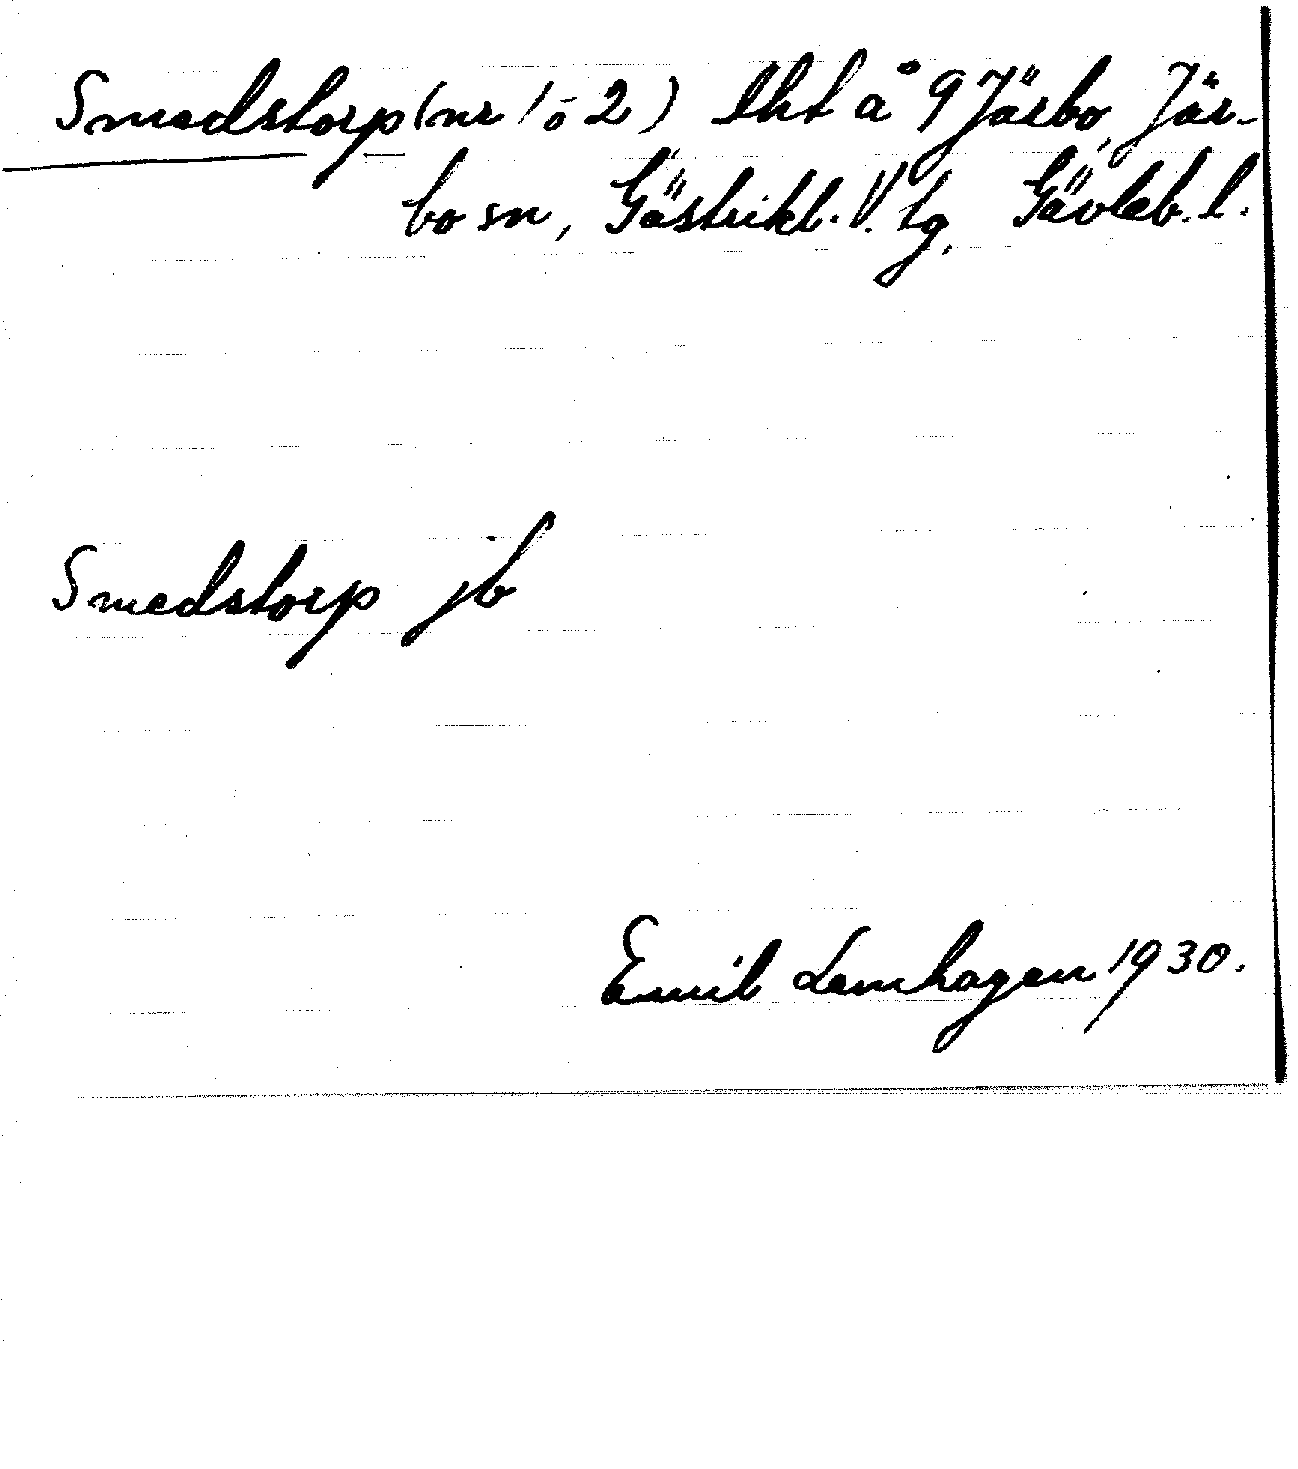 Smedstorp (nr 1 o 2) lht å 9 Järbo, Jär-
bo sn, Gästrikl. V. tg, Gävleb. l.
Smedstorp jb
Emil Lenhagen 1930.